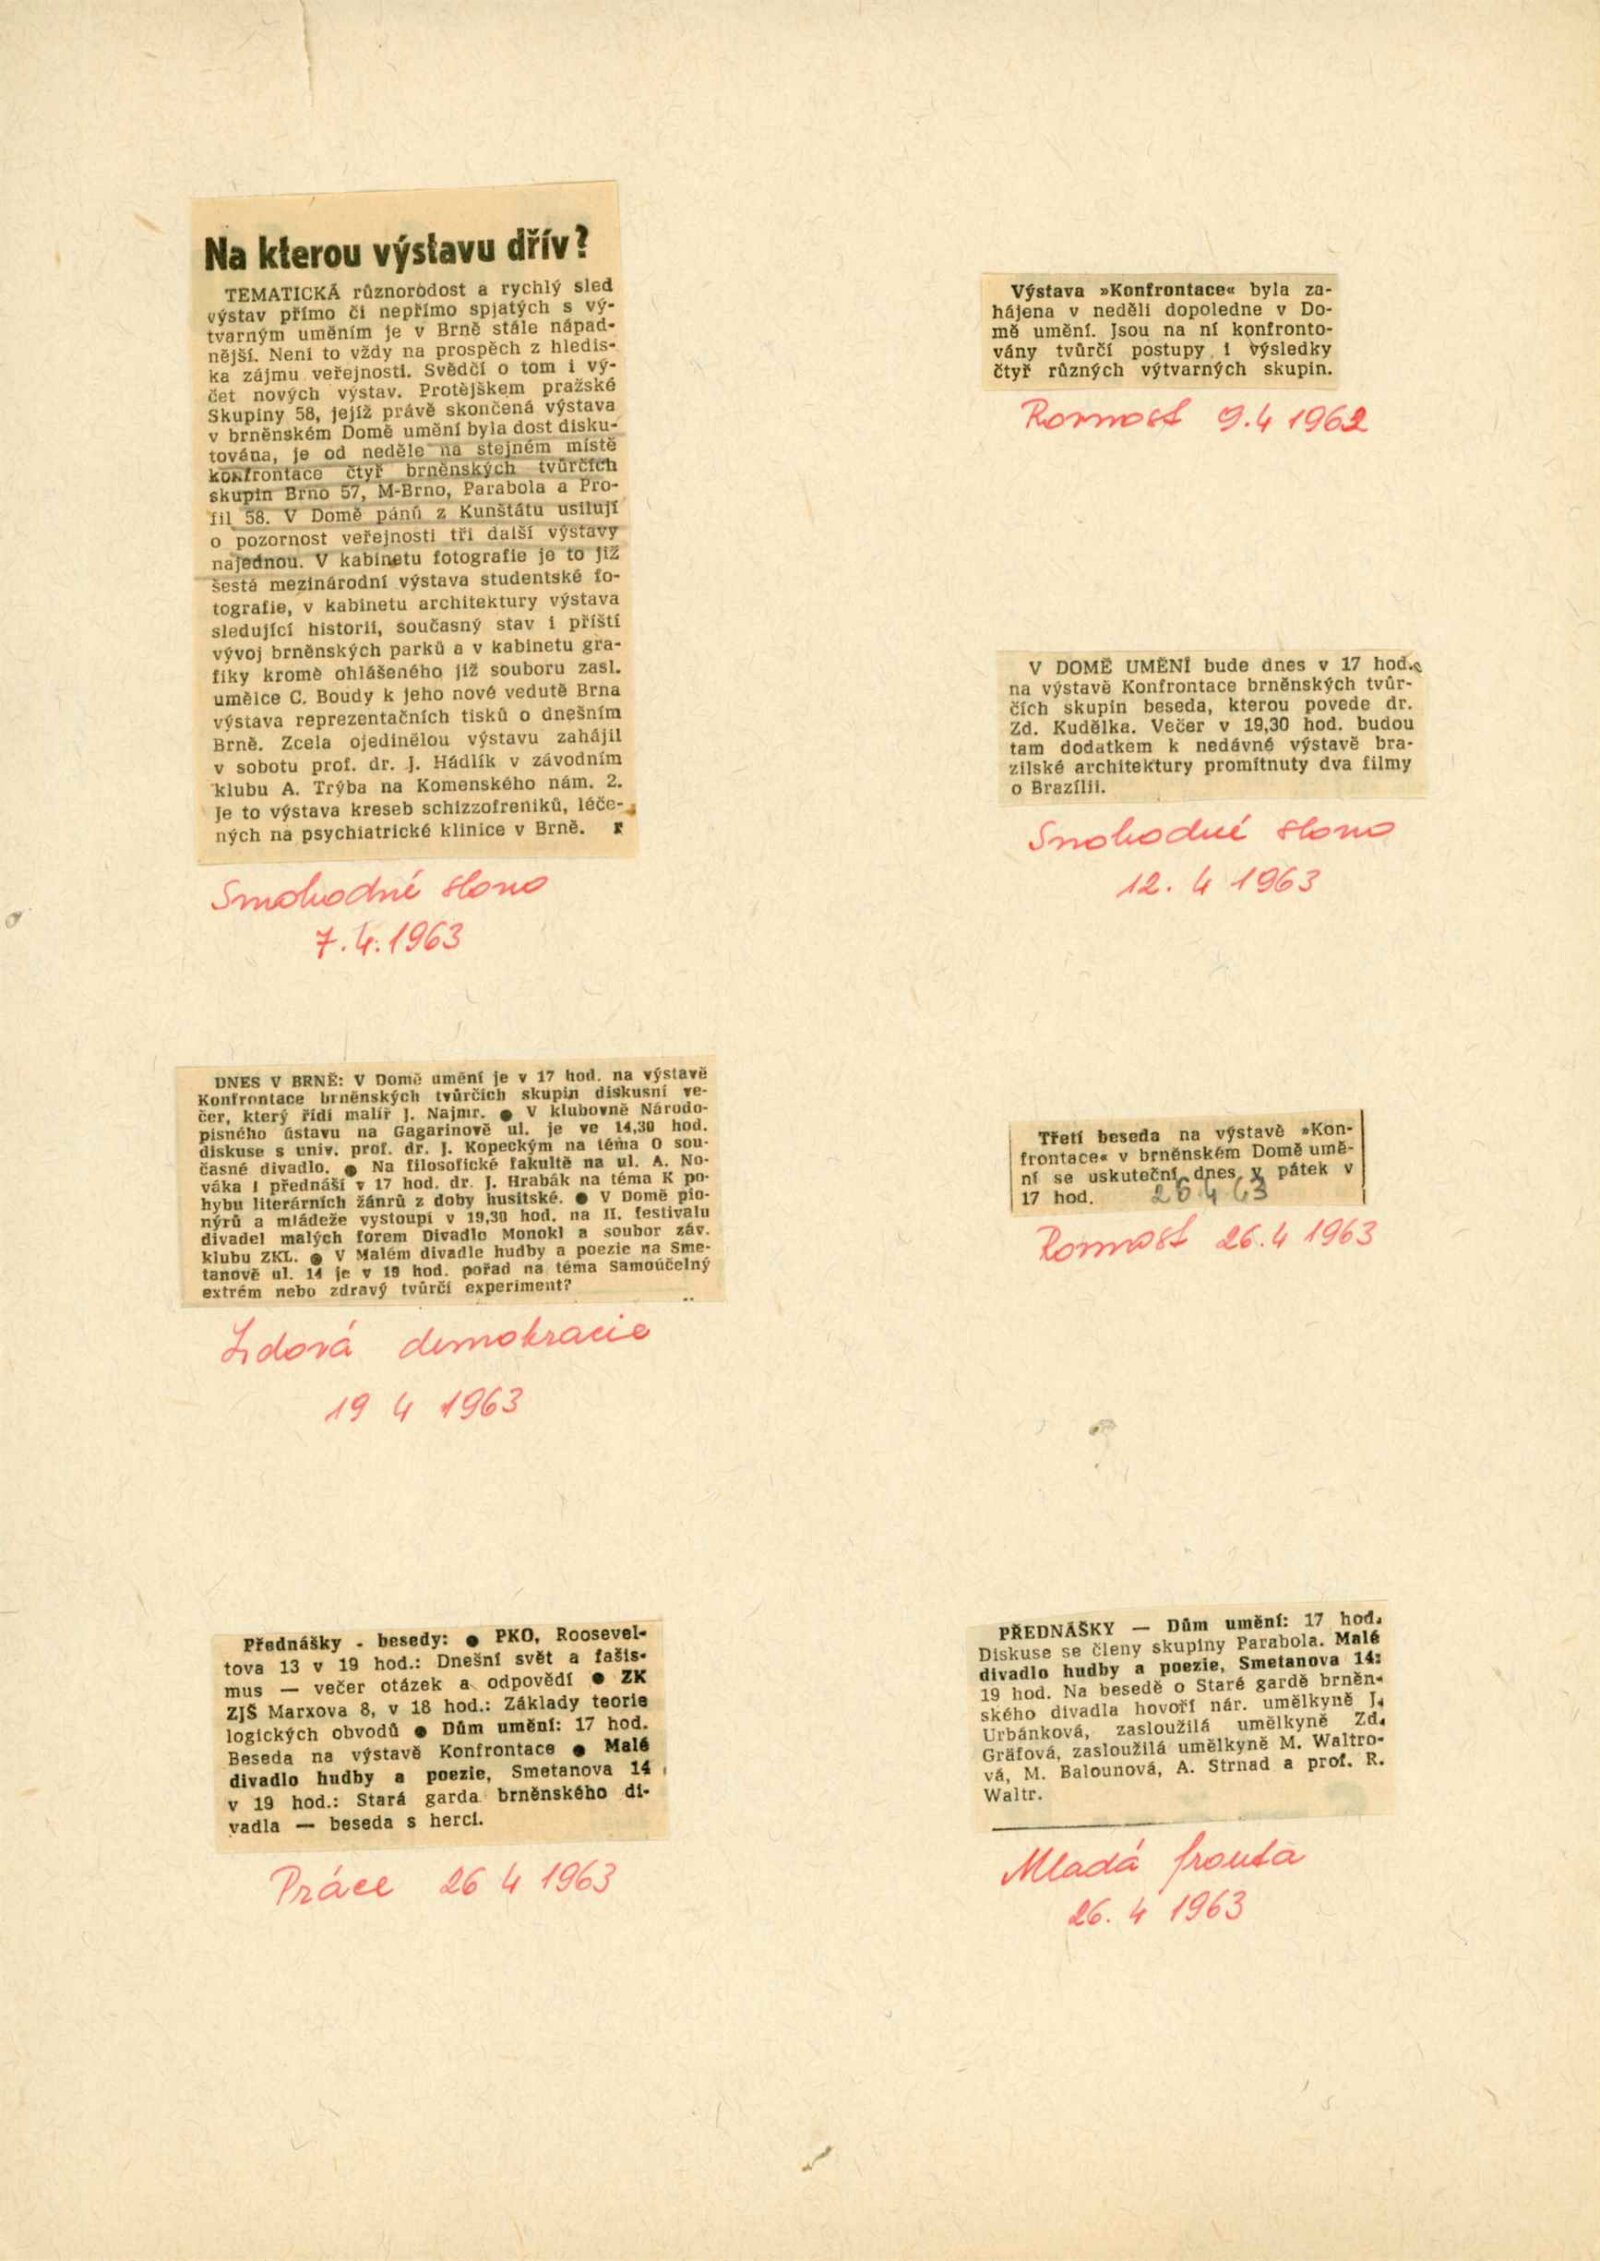 Na kterou výstavu dřív?
TEMATICKÁ různorodost a rychlý sled
výstav přímo či nepřímo spjatých s vý-
tvarným uměním je v Brně stále nápad-
nější. Není to vždy na prospěch z hledis-
ka zájmu veřejnosti. Svědčí o tom i vý-
čet nových výstav. Protějškem pražské
Skupiny 58, jejíž právě skončená výstava
v brněnském Domě umění byla dost disku-
tována, je od neděle na stejném místě
konfrontace čtyř brněnských tvůrčích
skupin Brno 57, M-Brno, Parabola a Pro-
fil 58. V Domě pánů z Kunštátu usilují
o pozornost veřejnosti tři další výstavy
najednou. V kabinetu fotografie je to již
šestá mezinárodní výstava studentské fo-
tografie, v kabinetu architektury výstava
sledující historii, současný stav i příští
vývoj brněnských parků a v kabinetu gra-
fiky kromě ohlášeného již souboru zasl.
umělce C. Boudy k jeho nové vedutě Brna
výstava reprezentačních tisků o dnešním
Brně. Zcela ojedinělou výstavu zahájil
v sobotu prof. dr. J. Hádlík v závodním
klubu A. Trýba na Komenského nám. 2.
Je to výstava kreseb schizzofreniků, léče-
ných na psychiatrické klinice v Brně. r
Svobodné slovo
7. 4. 1963
Výstava »Konfrontace« byla za-
hájena v neděli dopoledne v Do-
mě umění. Jsou na ní konfronto-
vány tvůrčí postupy i výsledky
čtyř různých výtvarných skupin.
Rovnost 9. 4 1962
V DOMĚ UMĚNÍ bude dnes v 17 hod.
na výstavě Konfrontace brněnských tvůr-
čích skupin beseda, kterou povede dr.
Zd. Kudělka. Večer v 19,30 hod. budou
tam dodatkem k nedávné výstavě bra-
zilské architektury promítnuty dva filmy
o Brazílii.
Svobodné slovo
12. 4 1963
DNES V BRNĚ: V Domě umění je v 17 hod. na výstavě
Konfrontace brněnských tvůrčích skupin diskusní ve-
čer, který řídí malíř J. Najmr. ● V klubovně Národo-
pisného ústavu na Gagarinově ul. je ve 14,30 hod.
diskuse s univ. prof. dr. J. Kopeckým na téma O sou-
časné divadlo. ● Na filosofické fakultě na ul. A. No-
váka 1 přednáší v 17 hod. dr. J. Hrabák na téma K po-
hybu literárních žánrů z doby husitské. ● V Domě pio-
nýrů a mládeže vystoupí v 19,30 hod. na II. festivalu
divadel malých forem Divadlo Monokl a soubor záv.
klubu ZKL. ● V Malém divadle hudby a poezie na Sme-
tanově ul. 14 je v 19 hod. pořad na téma Samoúčelný
extrém nebo zdravý tvůrčí experiment?
Lidová demokracie
19 4 1963
Třetí beseda na výstavě »Kon-
frontace« v brněnském Domě umě-
ní se uskuteční dnes v pátek v
17 hod. 26 4 63
Rovnost 26. 4 1963
Přednášky - besedy: ● PKO, Roosevel-
tova 13 v 19 hod.: Dnešní svět a fašis-
mus — večer otázek a odpovědí ● ZK
ZJŠ Marxova 8, v 18 hod.: Základy teorie
logických obvodů ● Dům umění: 17 hod.
Beseda na výstavě Konfrontace ● Malé
divadlo hudby a poezie, Smetanova 14
v 19 hod.: Stará garda brněnského di-
vadla — beseda s herci.
Práce 26 4 1963
PŘEDNÁŠKY — Dům umění: 17 hod.
Diskuse se členy skupiny Parabola. Malé
divadlo hudby a poezie, Smetanova 14:
19 hod. Na besedě o Staré gardě brněn-
ského divadla hovoří nár. umělkyně J.
Urbánková, zasloužilá umělkyně Zd.
Gräfová, zasloužilá umělkyně M. Waltro-
vá, M. Balounová, A. Strnad a prof. R.
Waltr.
Mladá fronta
26. 4 1963